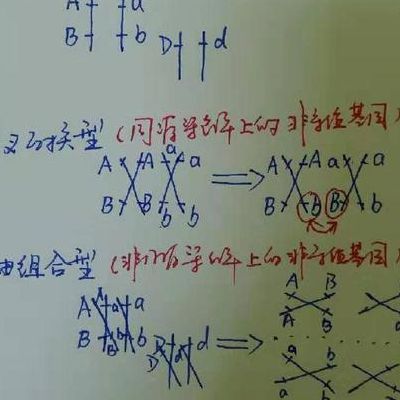 A a
B b D d
叉互换型 (同源染色体上的非等位基因)
A A a a A A a a
B B b b B b B b
由组合型 (非同源染色体上的非等位基因)
A a a A B
B B b b D d d A B
a b
a b